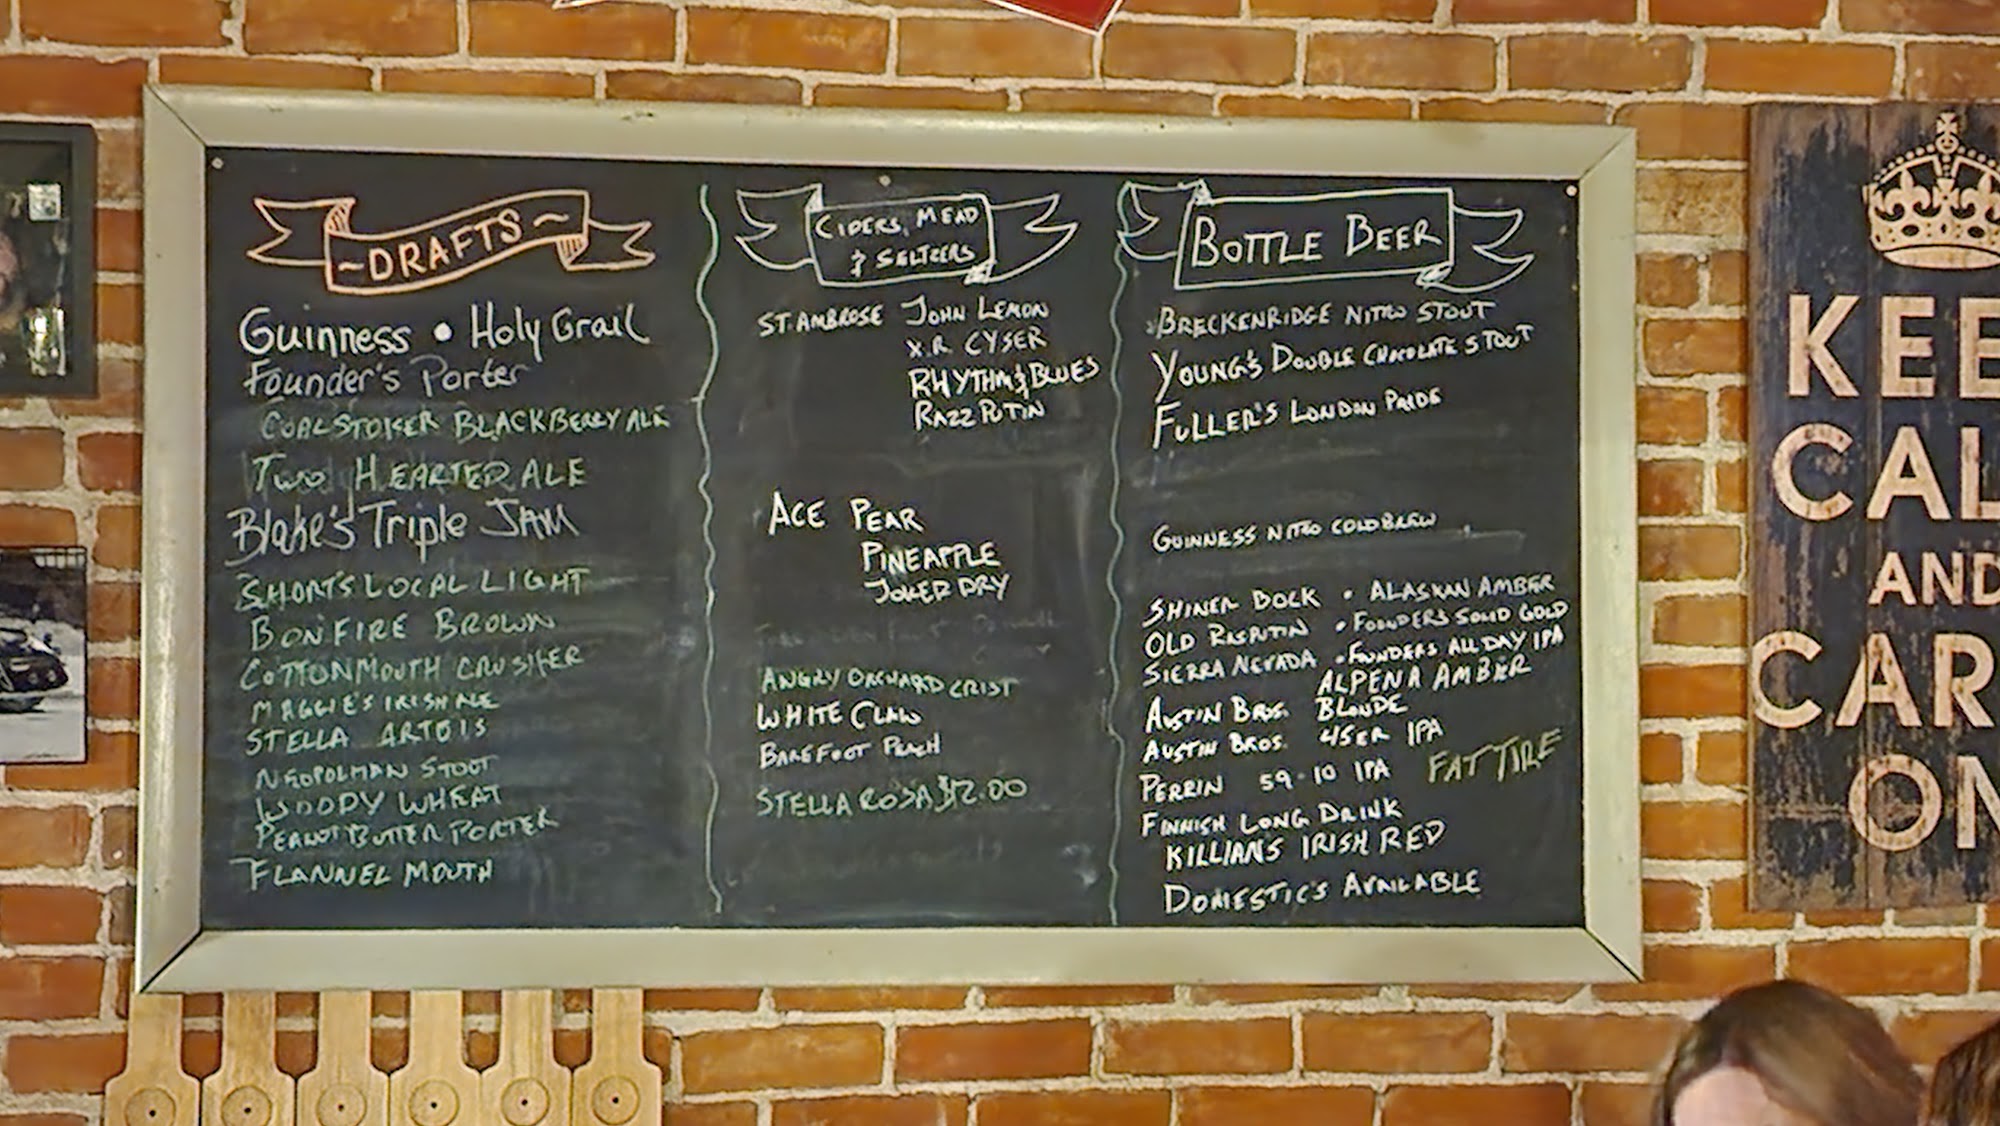 ~DRAFTS~
Guinness • Holy Grail
Founder's Porter
COALSTOKER BLACKBERRY ALE
TWO HEARTED ALE
Blake's Triple JAM
SHORTS LOCAL LIGHT
BONFIRE BROWN
COTTONMOUTH CRUSHER
MAGGIE'S IRISH ALE
STELLA ARTOIS
NEOPOLMAN STOUT
WOODY WHEAT
PEANUT BUTTER PORTER
FLANNEL MOUTH
CIDERS, MEAD
& SELTZERS
ST. AMBROSE JOHN LEMON
X.R. CYSER
RHYTHM & BLUES
RAZZ PUTIN
ACE PEAR
PINEAPPLE
JOKER DRY
ANGRY ORCHARD CRISP
WHITE CLAW
BAREFOOT PEACH
STELLA ROSA $12.00
BOTTLE BEER
BRECKENRIDGE NITRO STOUT
YOUNG'S DOUBLE CHOCOLATE STOUT
FULLER'S LONDON PRIDE
GUINNESS NITRO COLD BREW
SHINER BOCK • ALASKAN AMBER
OLD RASPUTIN • FOUNDERS SOLID GOLD
SIERRA NEVADA • FOUNDERS ALL DAY IPA
ALPENA AMBER
AUSTIN BROS. BLONDE
AUSTIN BROS. 45ER IPA
PERRIN 59-10 IPA FAT TIRE
FINNISH LONG DRINK
KILLIANS IRISH RED
DOMESTIC'S AVAILABLE
KEE
CAL
AND
CAR
ON